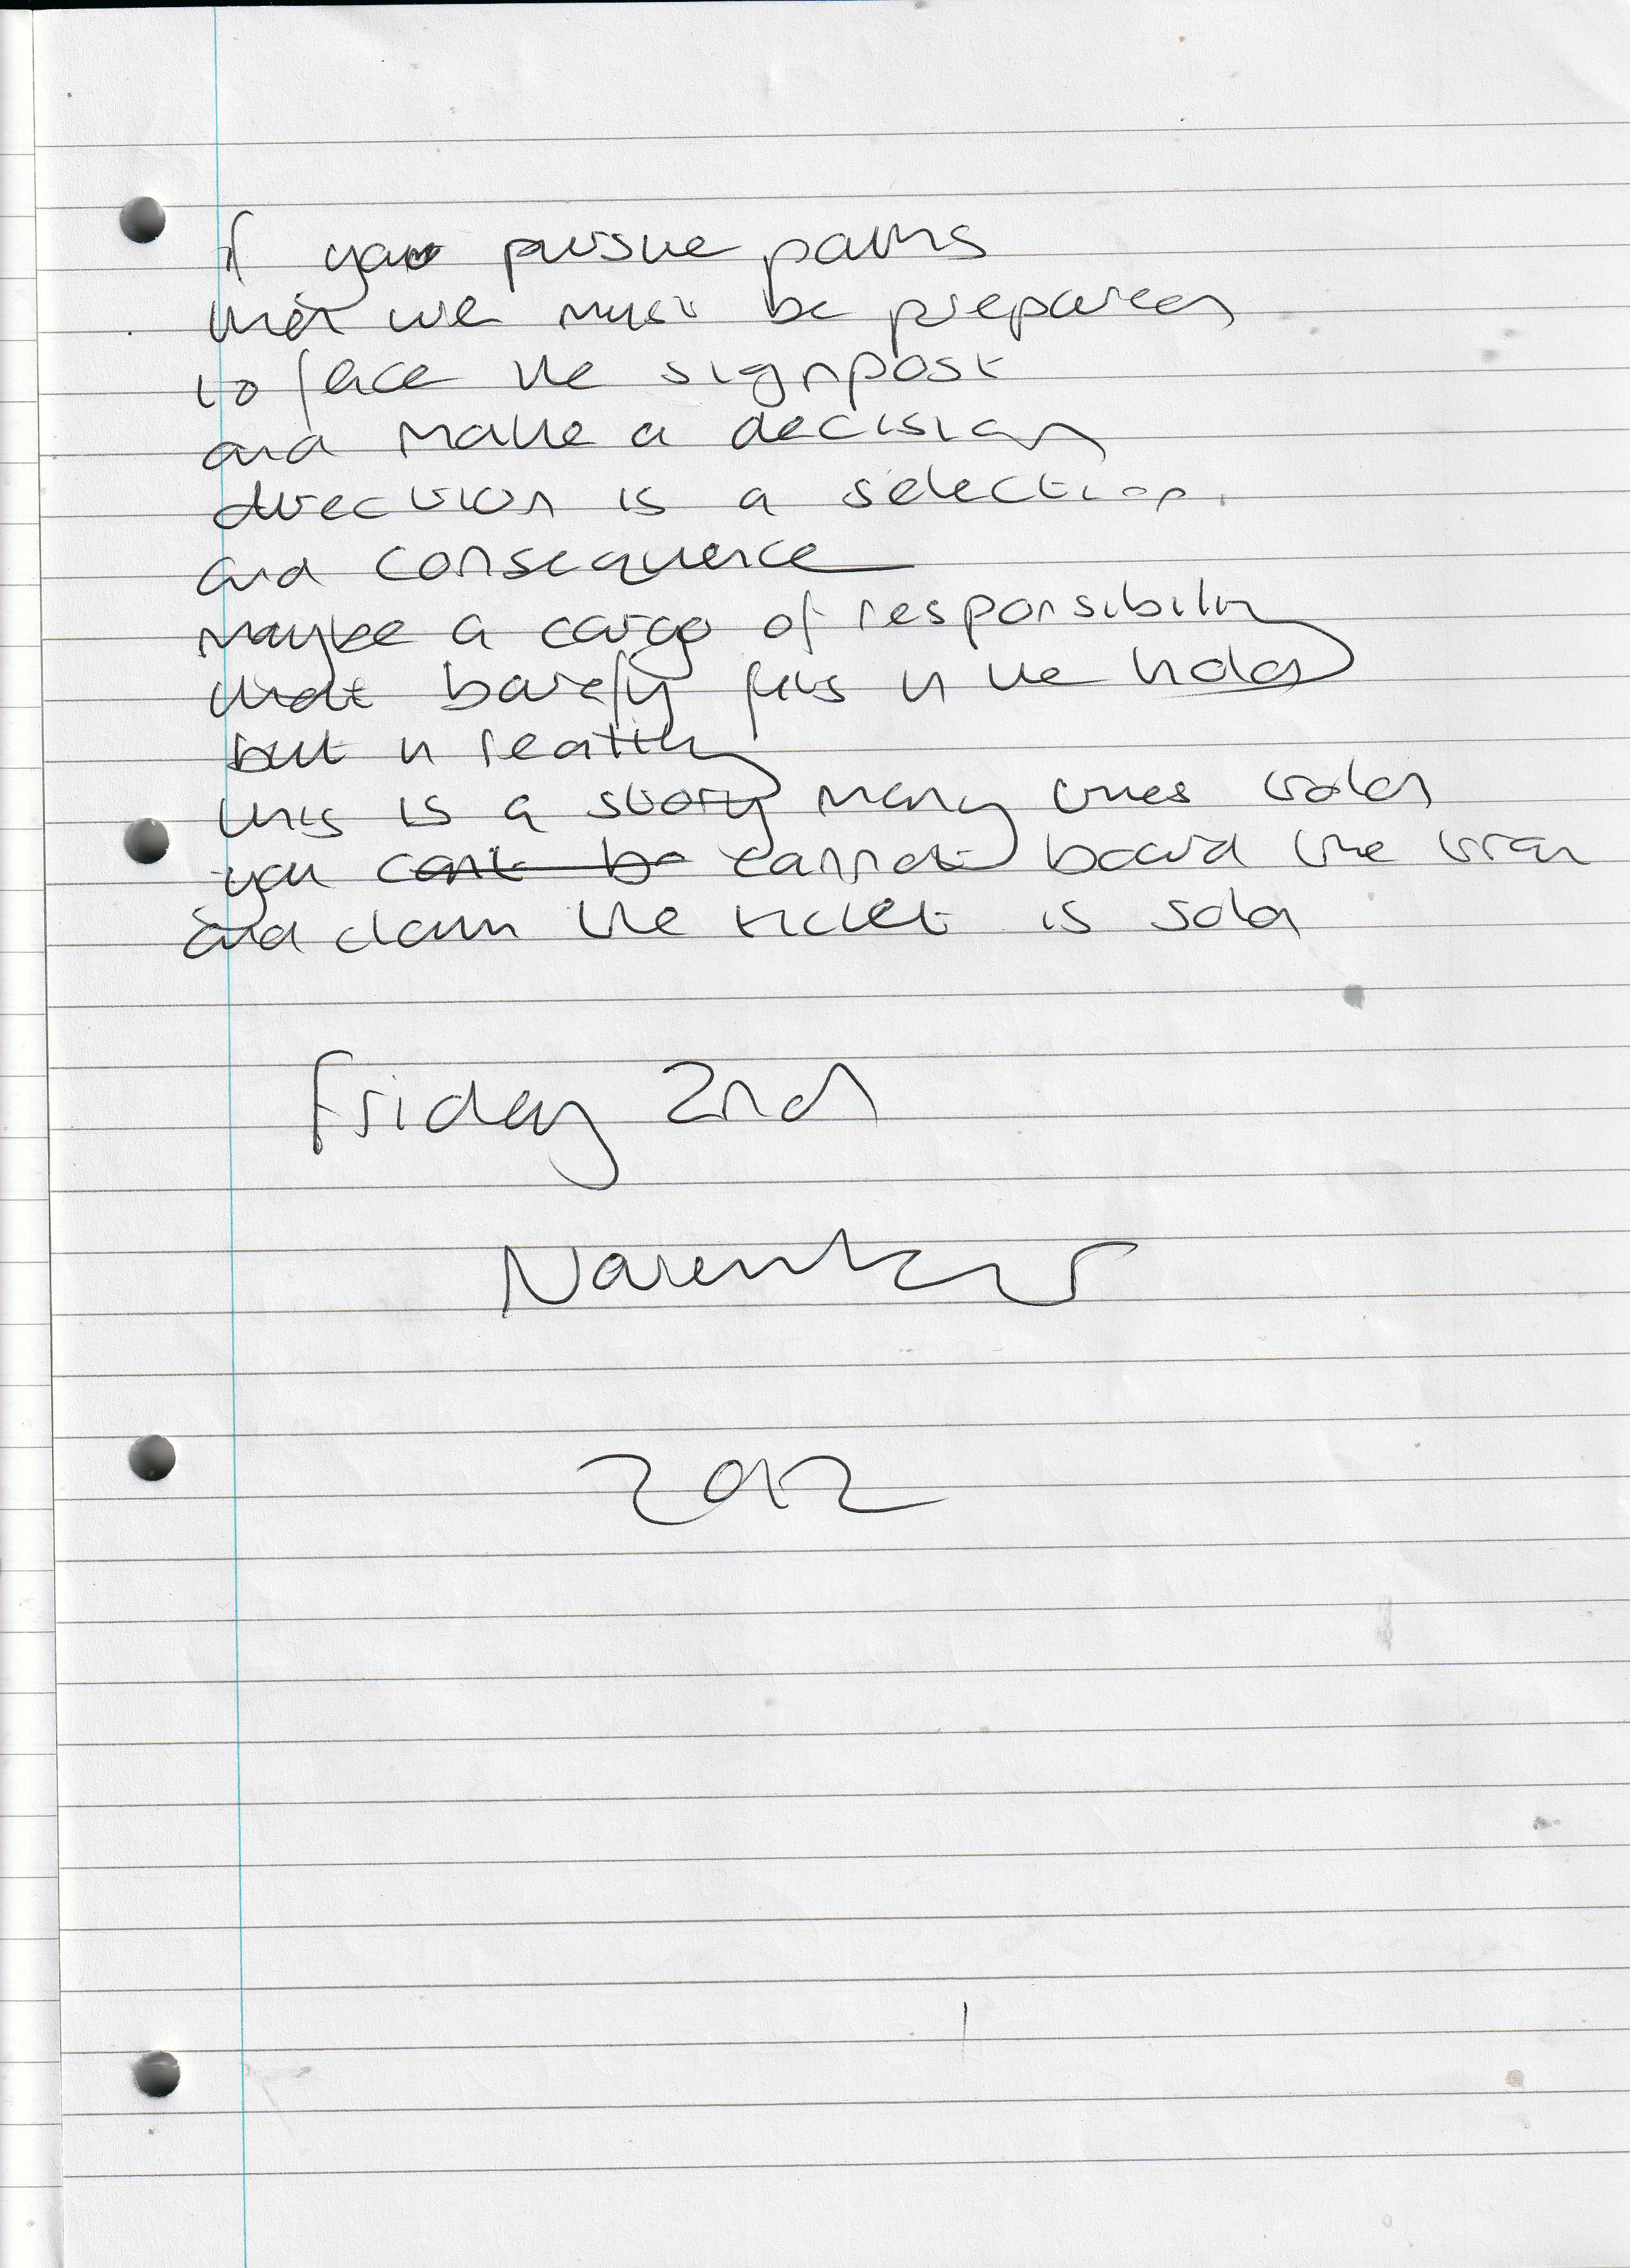 if you pursue paths
that we must be prepared
to face the signpost
and make a decision
direction is a selection
and consequence
maybe a cargo of responsibility
that barely fits in the hold
but in reality
this is a story many times told
you cant be cannot board the train
and claim the ticket is sold
Friday 2nd
November
2012